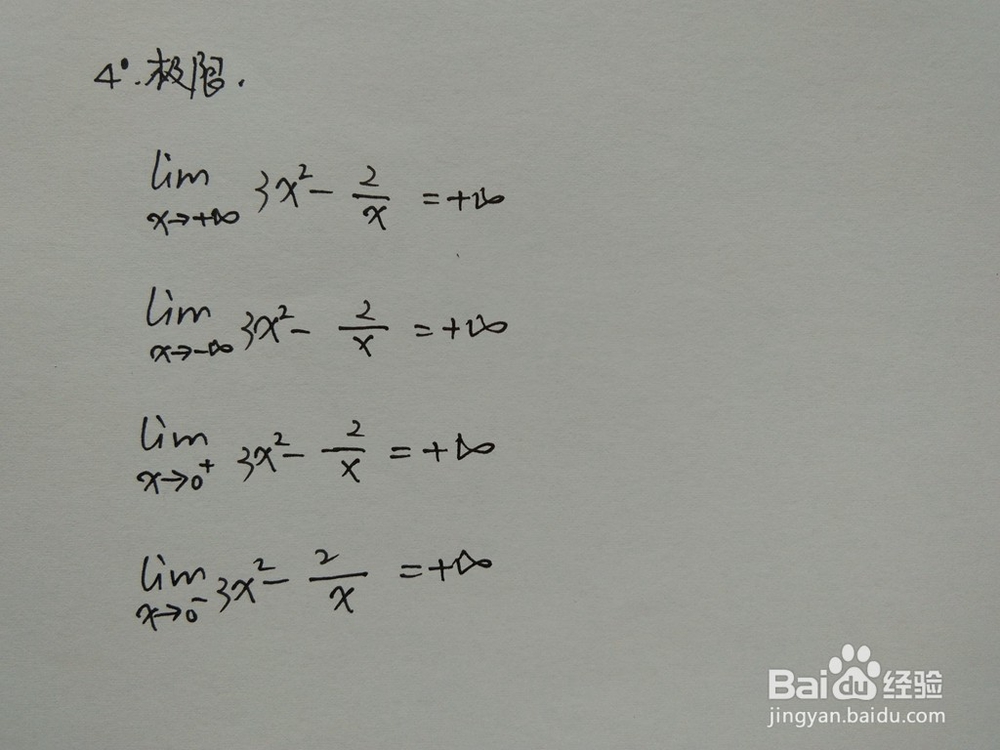 4°. 极限.
lim x→+∞ 3x² - 2/x = +∞
lim x→-∞ 3x² - 2/x = +∞
lim x→0⁺ 3x² - 2/x = +∞
lim x→0⁻ 3x² - 2/x = +∞
Baidu经验
jingyan.baidu.com